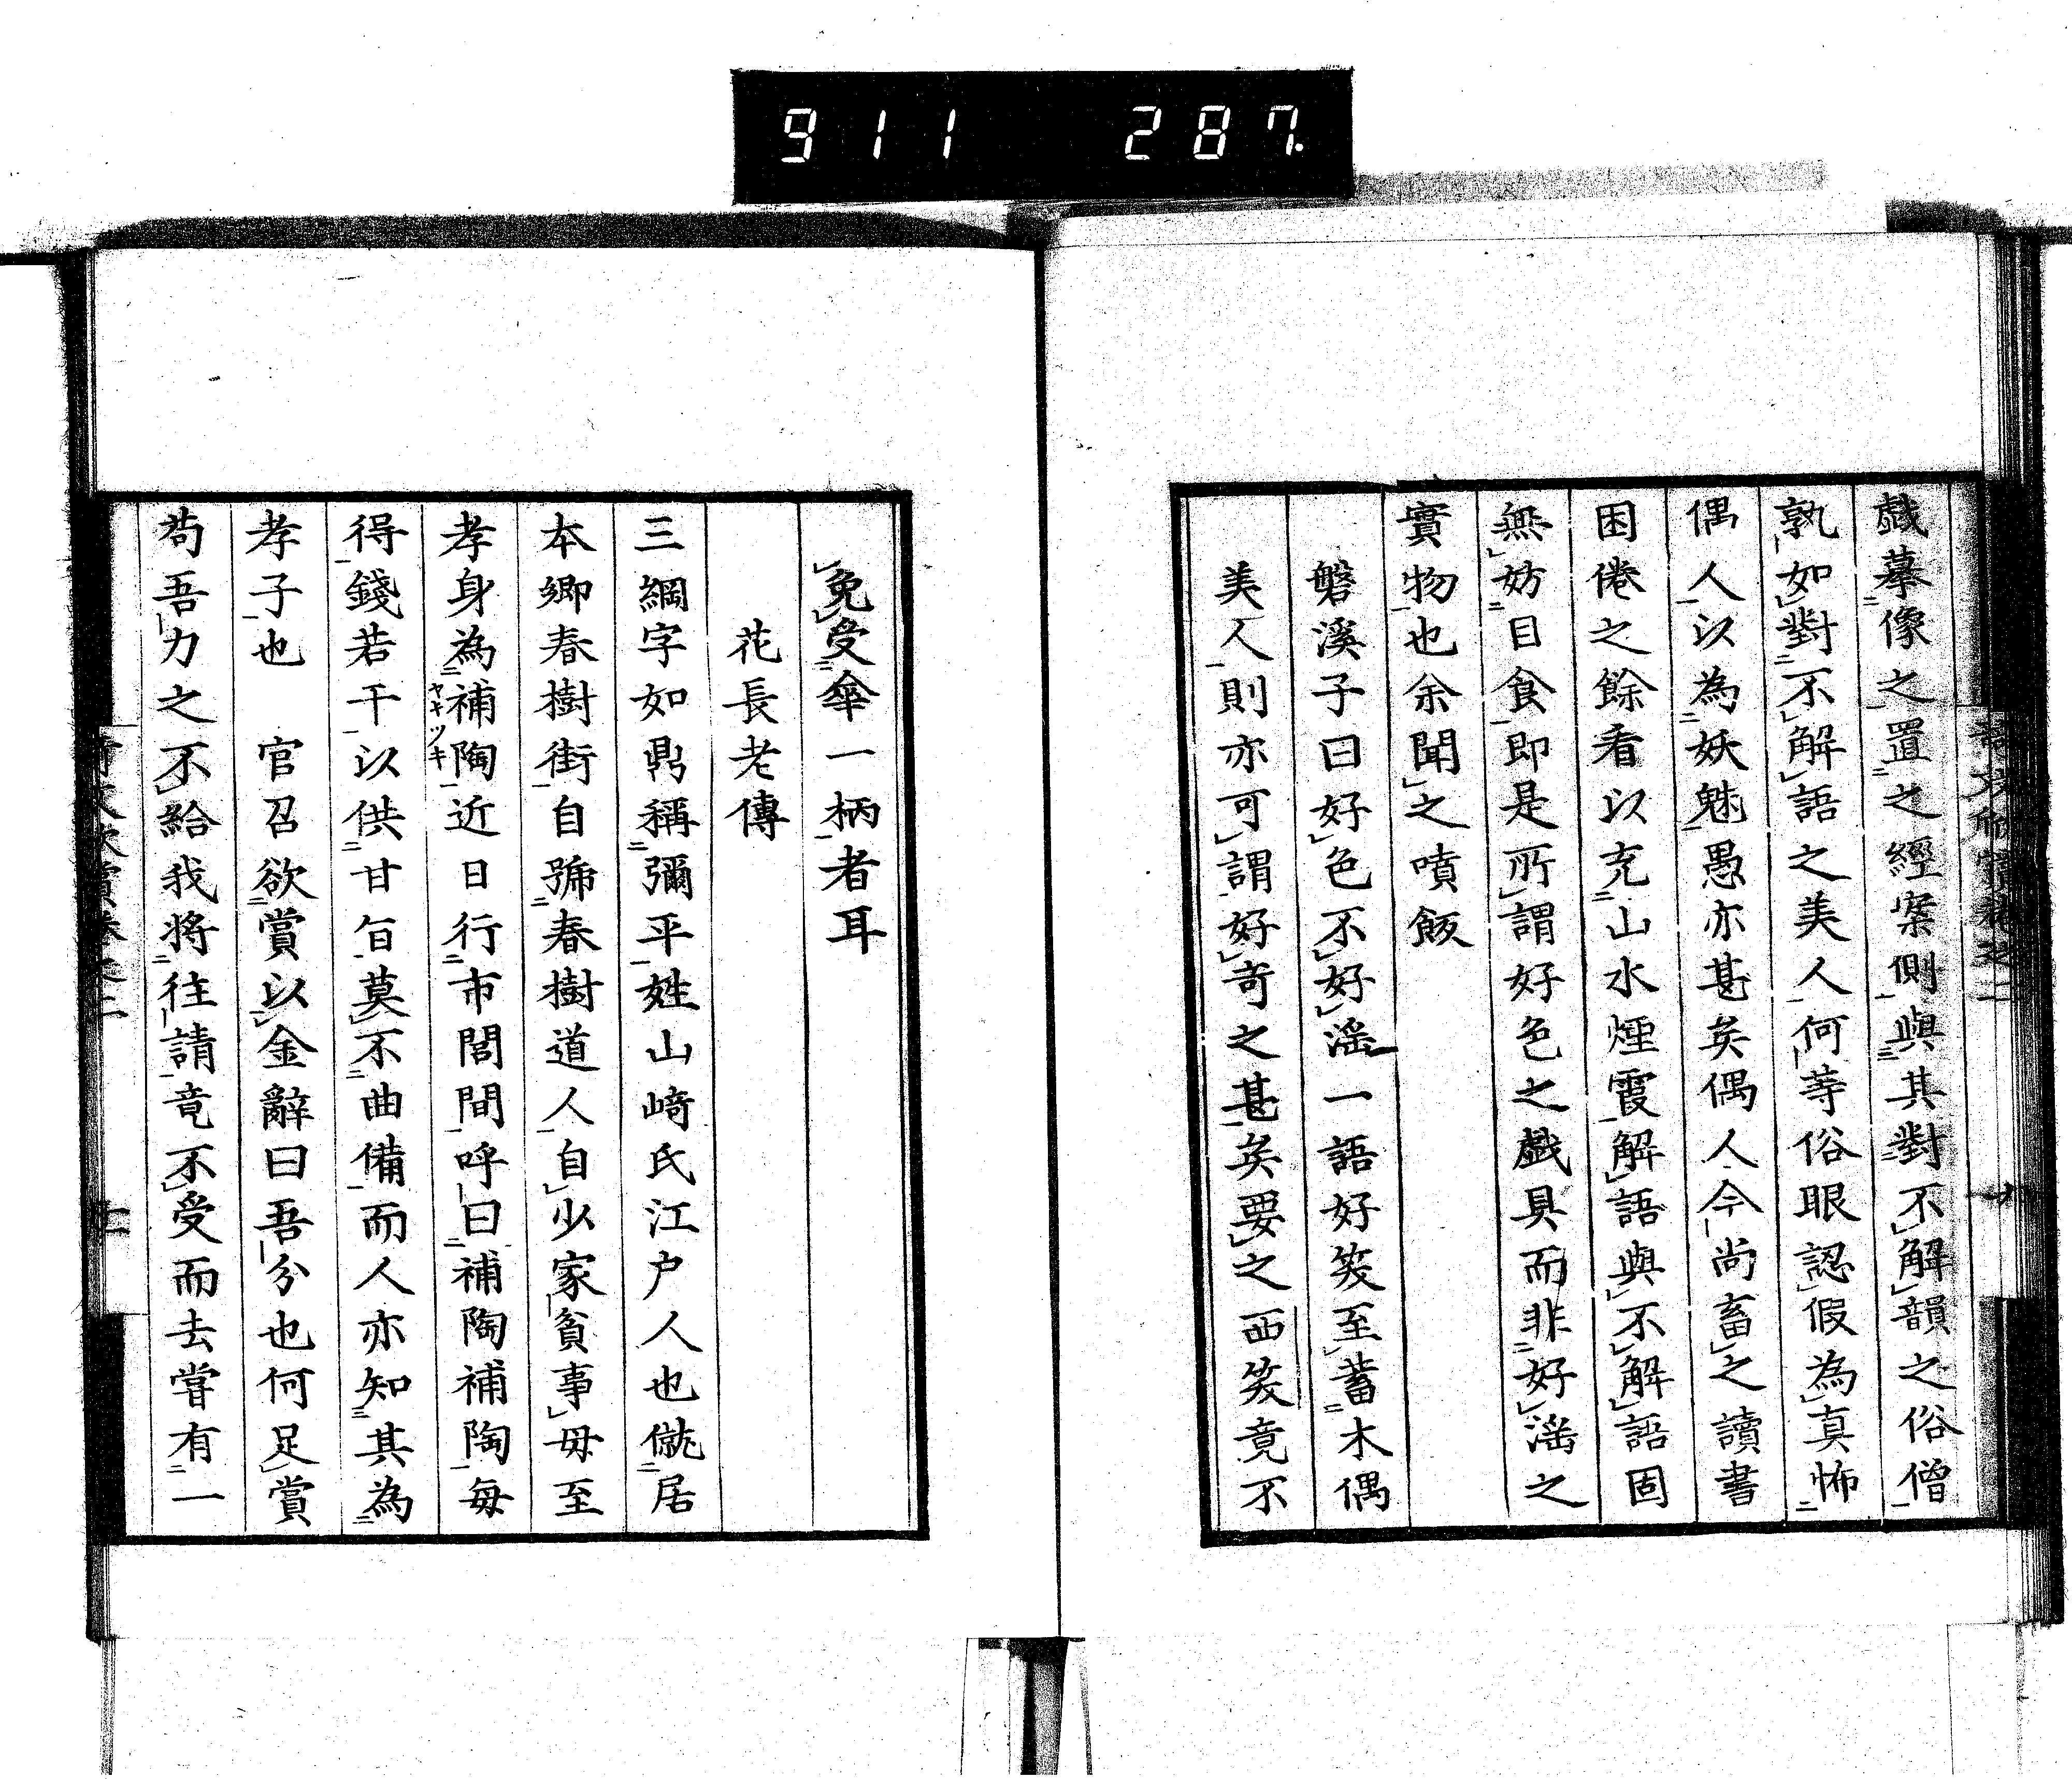 911 287.
戯摹像之置之經案側與其對不解韻之俗僧
孰如對不解語之美人何等俗眼認假為真怖
偶人以為妖魅愚亦甚矣偶人今尚畜之讀書
困倦之餘看以充山水煙霞解語與不解語固
無妨目食即是所謂好色之戯具而非好滛之
實物也余聞之噴飯
磐溪子曰好色不好滛一語好笑至蓄木偶
美人則亦可謂好奇之甚矣要之西笑竟不
免受傘一柄者耳
花長老傳
三綱字如鼎稱彌平姓山崎氏江户人也僦居
本郷春樹街自號春樹道人自少家貧事毋至
孝身為補陶近日行市閭間呼曰補陶補陶每
ヤキツキ
得錢若干以供甘旨莫不曲備而人亦知其為
孝子也 官召欲賞以金辭曰吾分也何足賞
苟吾力之不給我將往請竟不受而去嘗有一